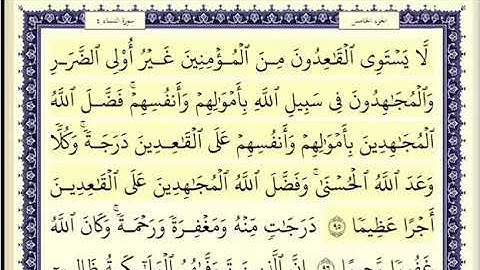 الجزء الخامس سورة النساء ٤
لَّا يَسْتَوِى ٱلْقَٰعِدُونَ مِنَ ٱلْمُؤْمِنِينَ غَيْرُ أُو۟لِى ٱلضَّرَرِ
وَٱلْمُجَٰهِدُونَ فِى سَبِيلِ ٱللَّهِ بِأَمْوَٰلِهِمْ وَأَنفُسِهِمْ ۚ فَضَّلَ ٱللَّهُ
ٱلْمُجَٰهِدِينَ بِأَمْوَٰلِهِمْ وَأَنفُسِهِمْ عَلَى ٱلْقَٰعِدِينَ دَرَجَةً ۚ وَكُلًّا
وَعَدَ ٱللَّهُ ٱلْحُسْنَىٰ ۚ وَفَضَّلَ ٱللَّهُ ٱلْمُجَٰهِدِينَ عَلَى ٱلْقَٰعِدِينَ
أَجْرًا عَظِيمًا ٩٥ دَرَجَٰتٍ مِّنْهُ وَمَغْفِرَةً وَرَحْمَةً ۚ وَكَانَ ٱللَّهُ
غَفُورًا رَّحِيمًا ٩٦ إِنَّ ٱلَّذِينَ تَوَفَّىٰهُمُ ٱلْمَلَٰٓئِكَةُ ظَالِمِىٓ